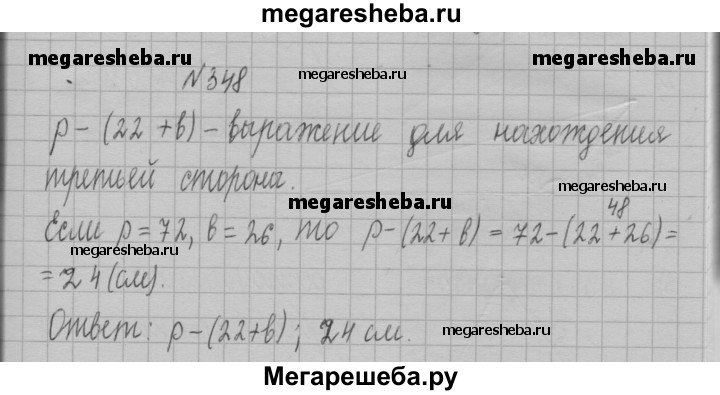 megaresheba.ru
megaresheba.ru
megaresheba.ru
№348 megaresheba.ru
p-(22+b) - выражение для нахождения
третьей стороны.
megaresheba.ru
megaresheba.ru
48
Если p=72, b=26, то p-(22+b) = 72-(22+26)=
megaresheba.ru
=24 (см).
Ответ: p-(22+b); 24 см.
megaresheba.ru
Мегарешеба.ру